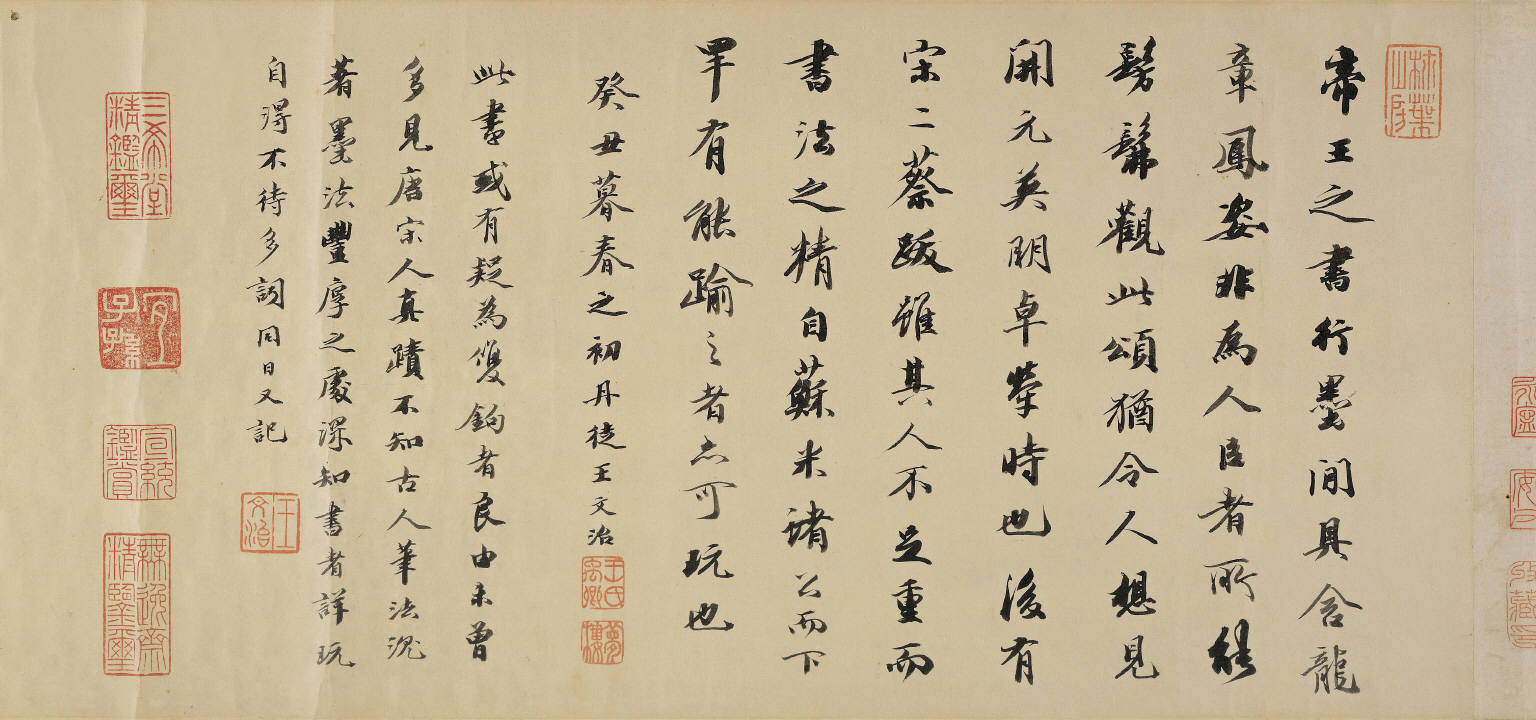 帝王之書行墨間具含龍
章鳳姿非為人臣者所能
髣髴觀此頌猶令人想見
開元英明卓犖時也後有
宋二蔡跋雖其人不足重而
書法之精自蘇米諸公而下
罕有能踰之者亦可玩也
癸丑暮春之初丹徒王文治
王氏禹卿
夢樓
此書或有疑為雙鉤者良由未曾
多見唐宋人真蹟不知古人筆法沉
著墨法豐厚之處深知書者詳玩
自得不待多詞同日又記
王文治
三希堂精鑑璽
宜子孫
宣統鑑賞
無逸齋精鑒璽